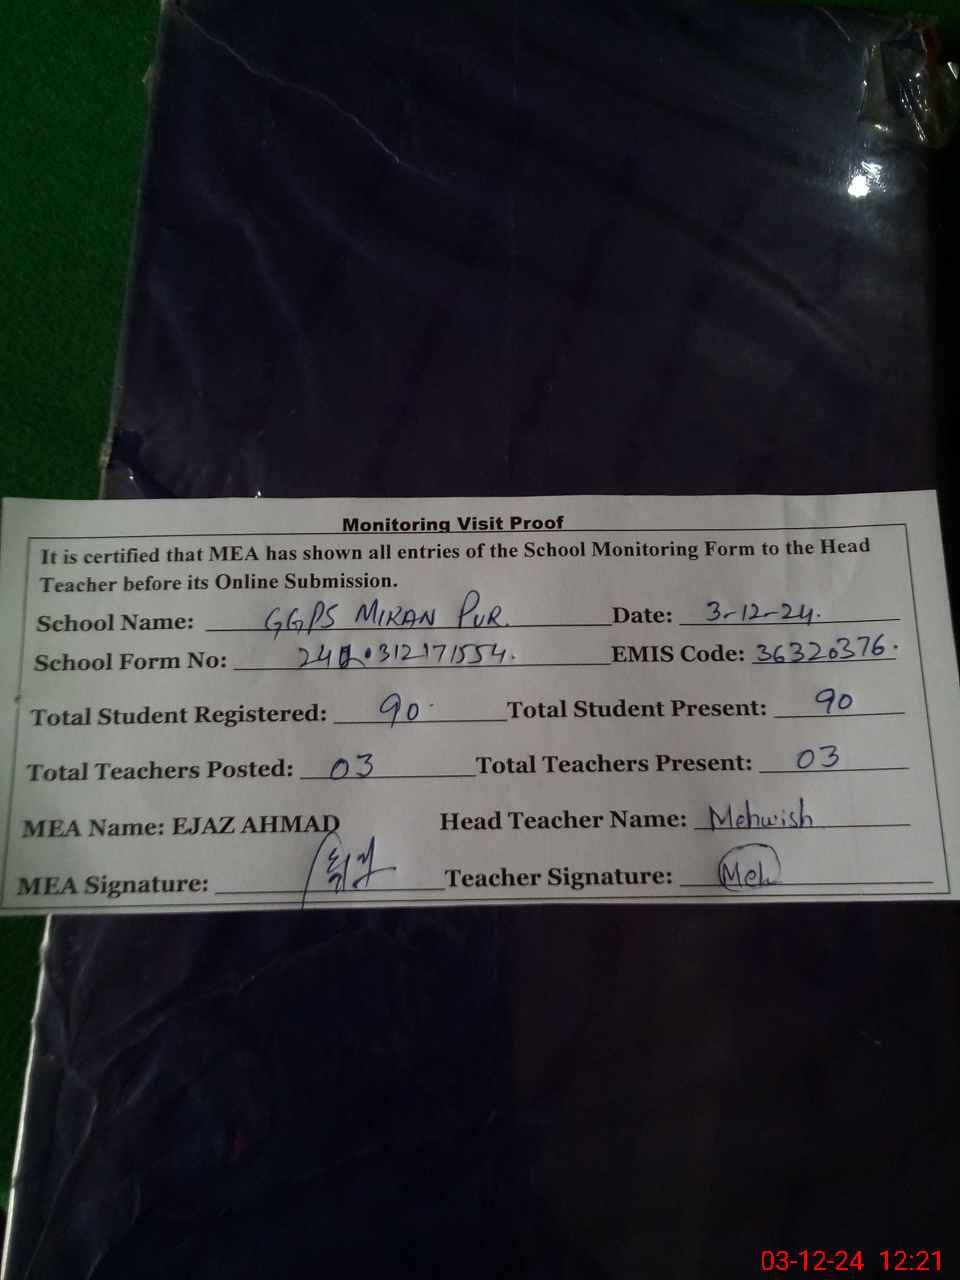 Monitoring Visit Proof
It is certified that MEA has shown all entries of the School Monitoring Form to the Head
Teacher before its Online Submission.
School Name: GGPS MIRAN PUR. Date: 3-12-24.
School Form No: EMIS Code: 36320376.
Total Student Registered: 90 Total Student Present: 90
Total Teachers Posted: 03 Total Teachers Present: 03
MEA Name: EJAZ AHMAD Head Teacher Name: Mehwish
MEA Signature: Teacher Signature: Meh
03-12-24 12:21